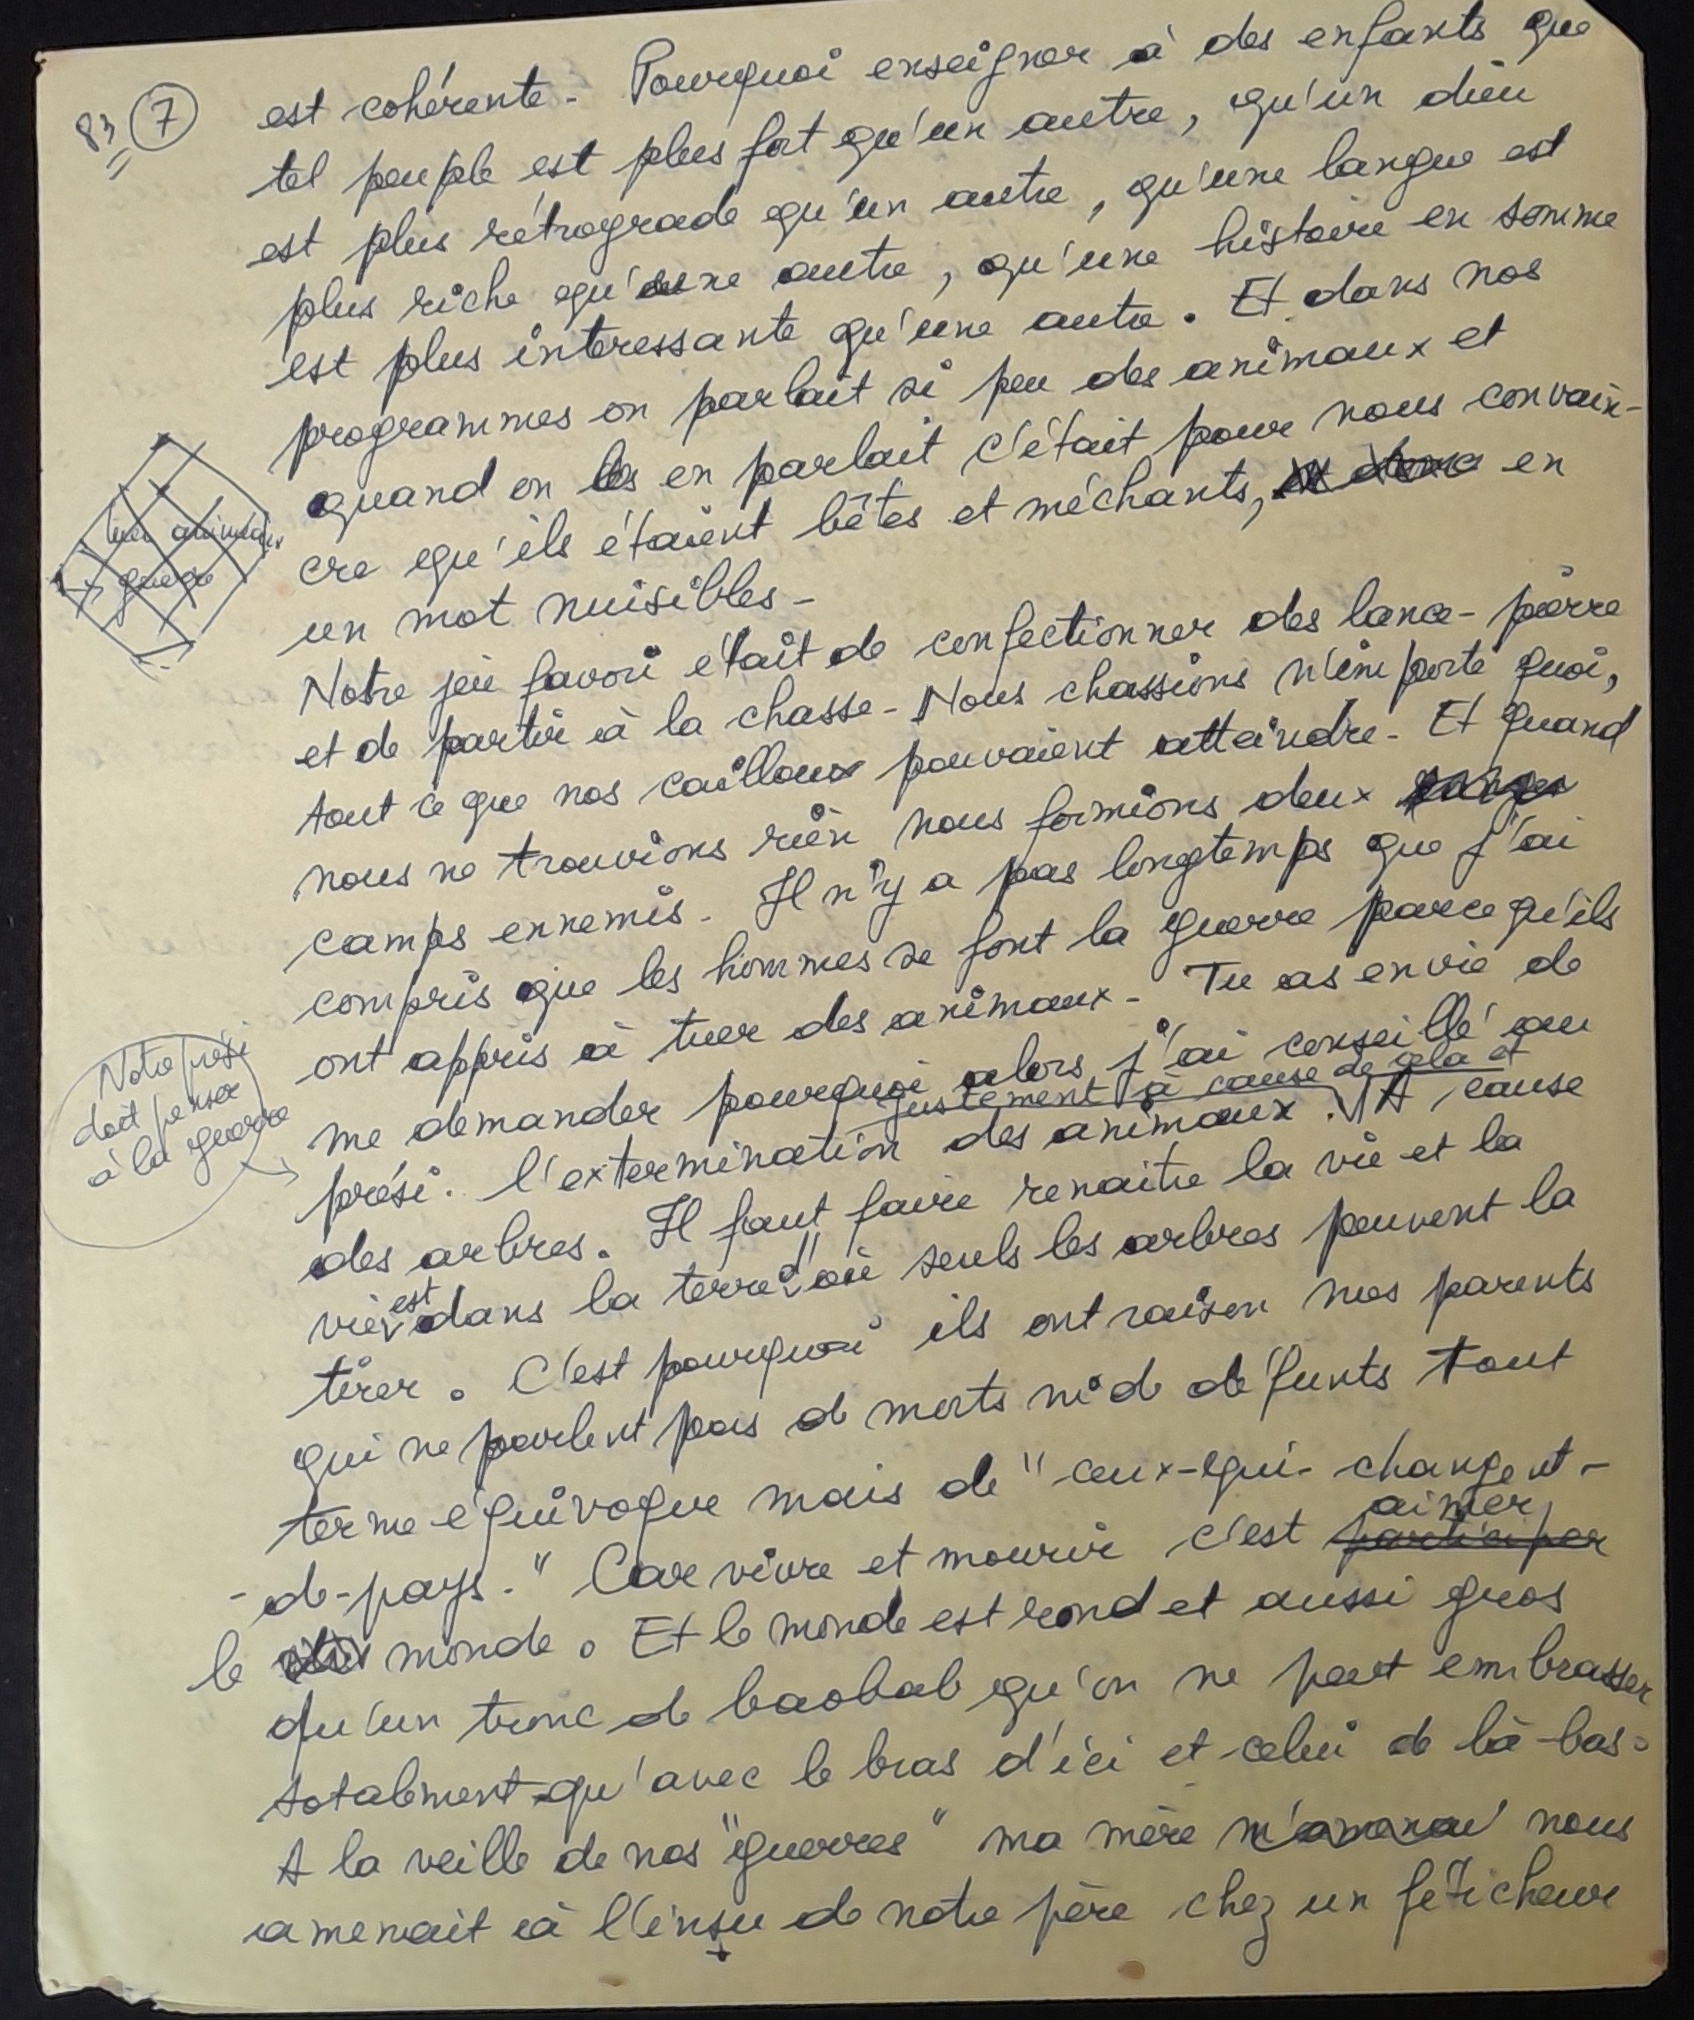 83 7
est cohérente - Pourquoi enseigner à des enfants que
tel peuple est plus fort qu'un autre, qu'un dieu
est plus rétrograde qu'un autre, qu'une langue est
plus riche qu'une autre, qu'une histoire en somme
est plus interessante qu'une autre. Et dans nos
programmes on parlait si peu des animaux et
quand on les en parlait c'était pour nous convain-
cre qu'ils étaient bêtes et méchants, et donc en
un mot nuisibles -
tuer animaux
guerre
Notre jeu favori était de confectionner des lance-pierre
et de partir à la chasse - Nous chassions n'importe quoi,
tout ce que nos cailloux pouvaient atteindre - Et quand
nous ne trouvions rien nous formions deux
camps ennemis. Il n'y a pas longtemps que j'ai
compris que les hommes se font la guerre parce qu'ils
ont appris à tuer des animaux - Tu as envie de
me demander pourquoi alors j'ai conseillé au
justement à cause de cela et
prési. l'extermination des animaux. A cause
Notre prési
doit penser
à la guerre
des arbres. Il faut faire renaitre la vie et la
vie est dans la terre d'où seuls les arbres peuvent la
tirer. C'est pourquoi ils ont raison nos parents
qui ne parlent pas de morts ni de défunts tout
terme équivoque mais de "ceux-qui-changent-
-de-pays." Car vivre et mourir c'est participer aimer
le monde. Et le monde est rond et aussi gros
qu'un tronc de baobab qu'on ne peut embrasser
totalement qu'avec le bras d'ici et celui de là-bas.
A la veille de nos "guerres" ma mère m'amenait nous
amenait à l'insu de notre père chez un féticheur